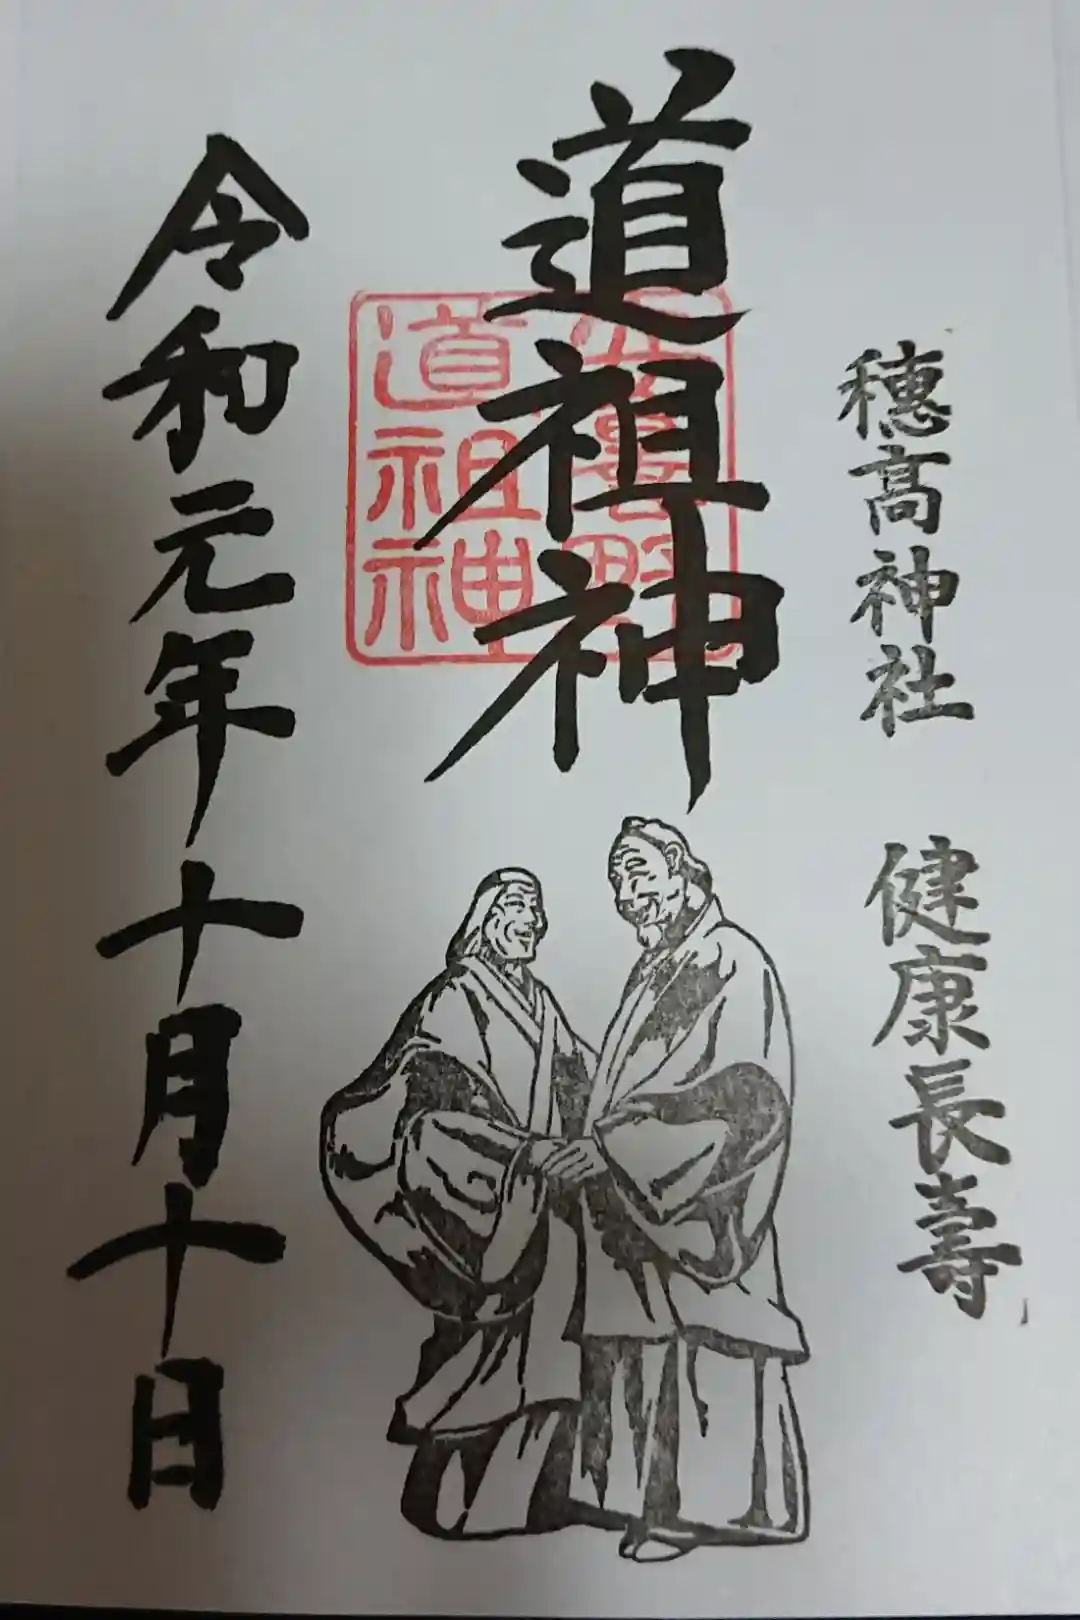 穗髙神社 健康長壽
道祖神
安曇野
道祖神
令和元年十月十日